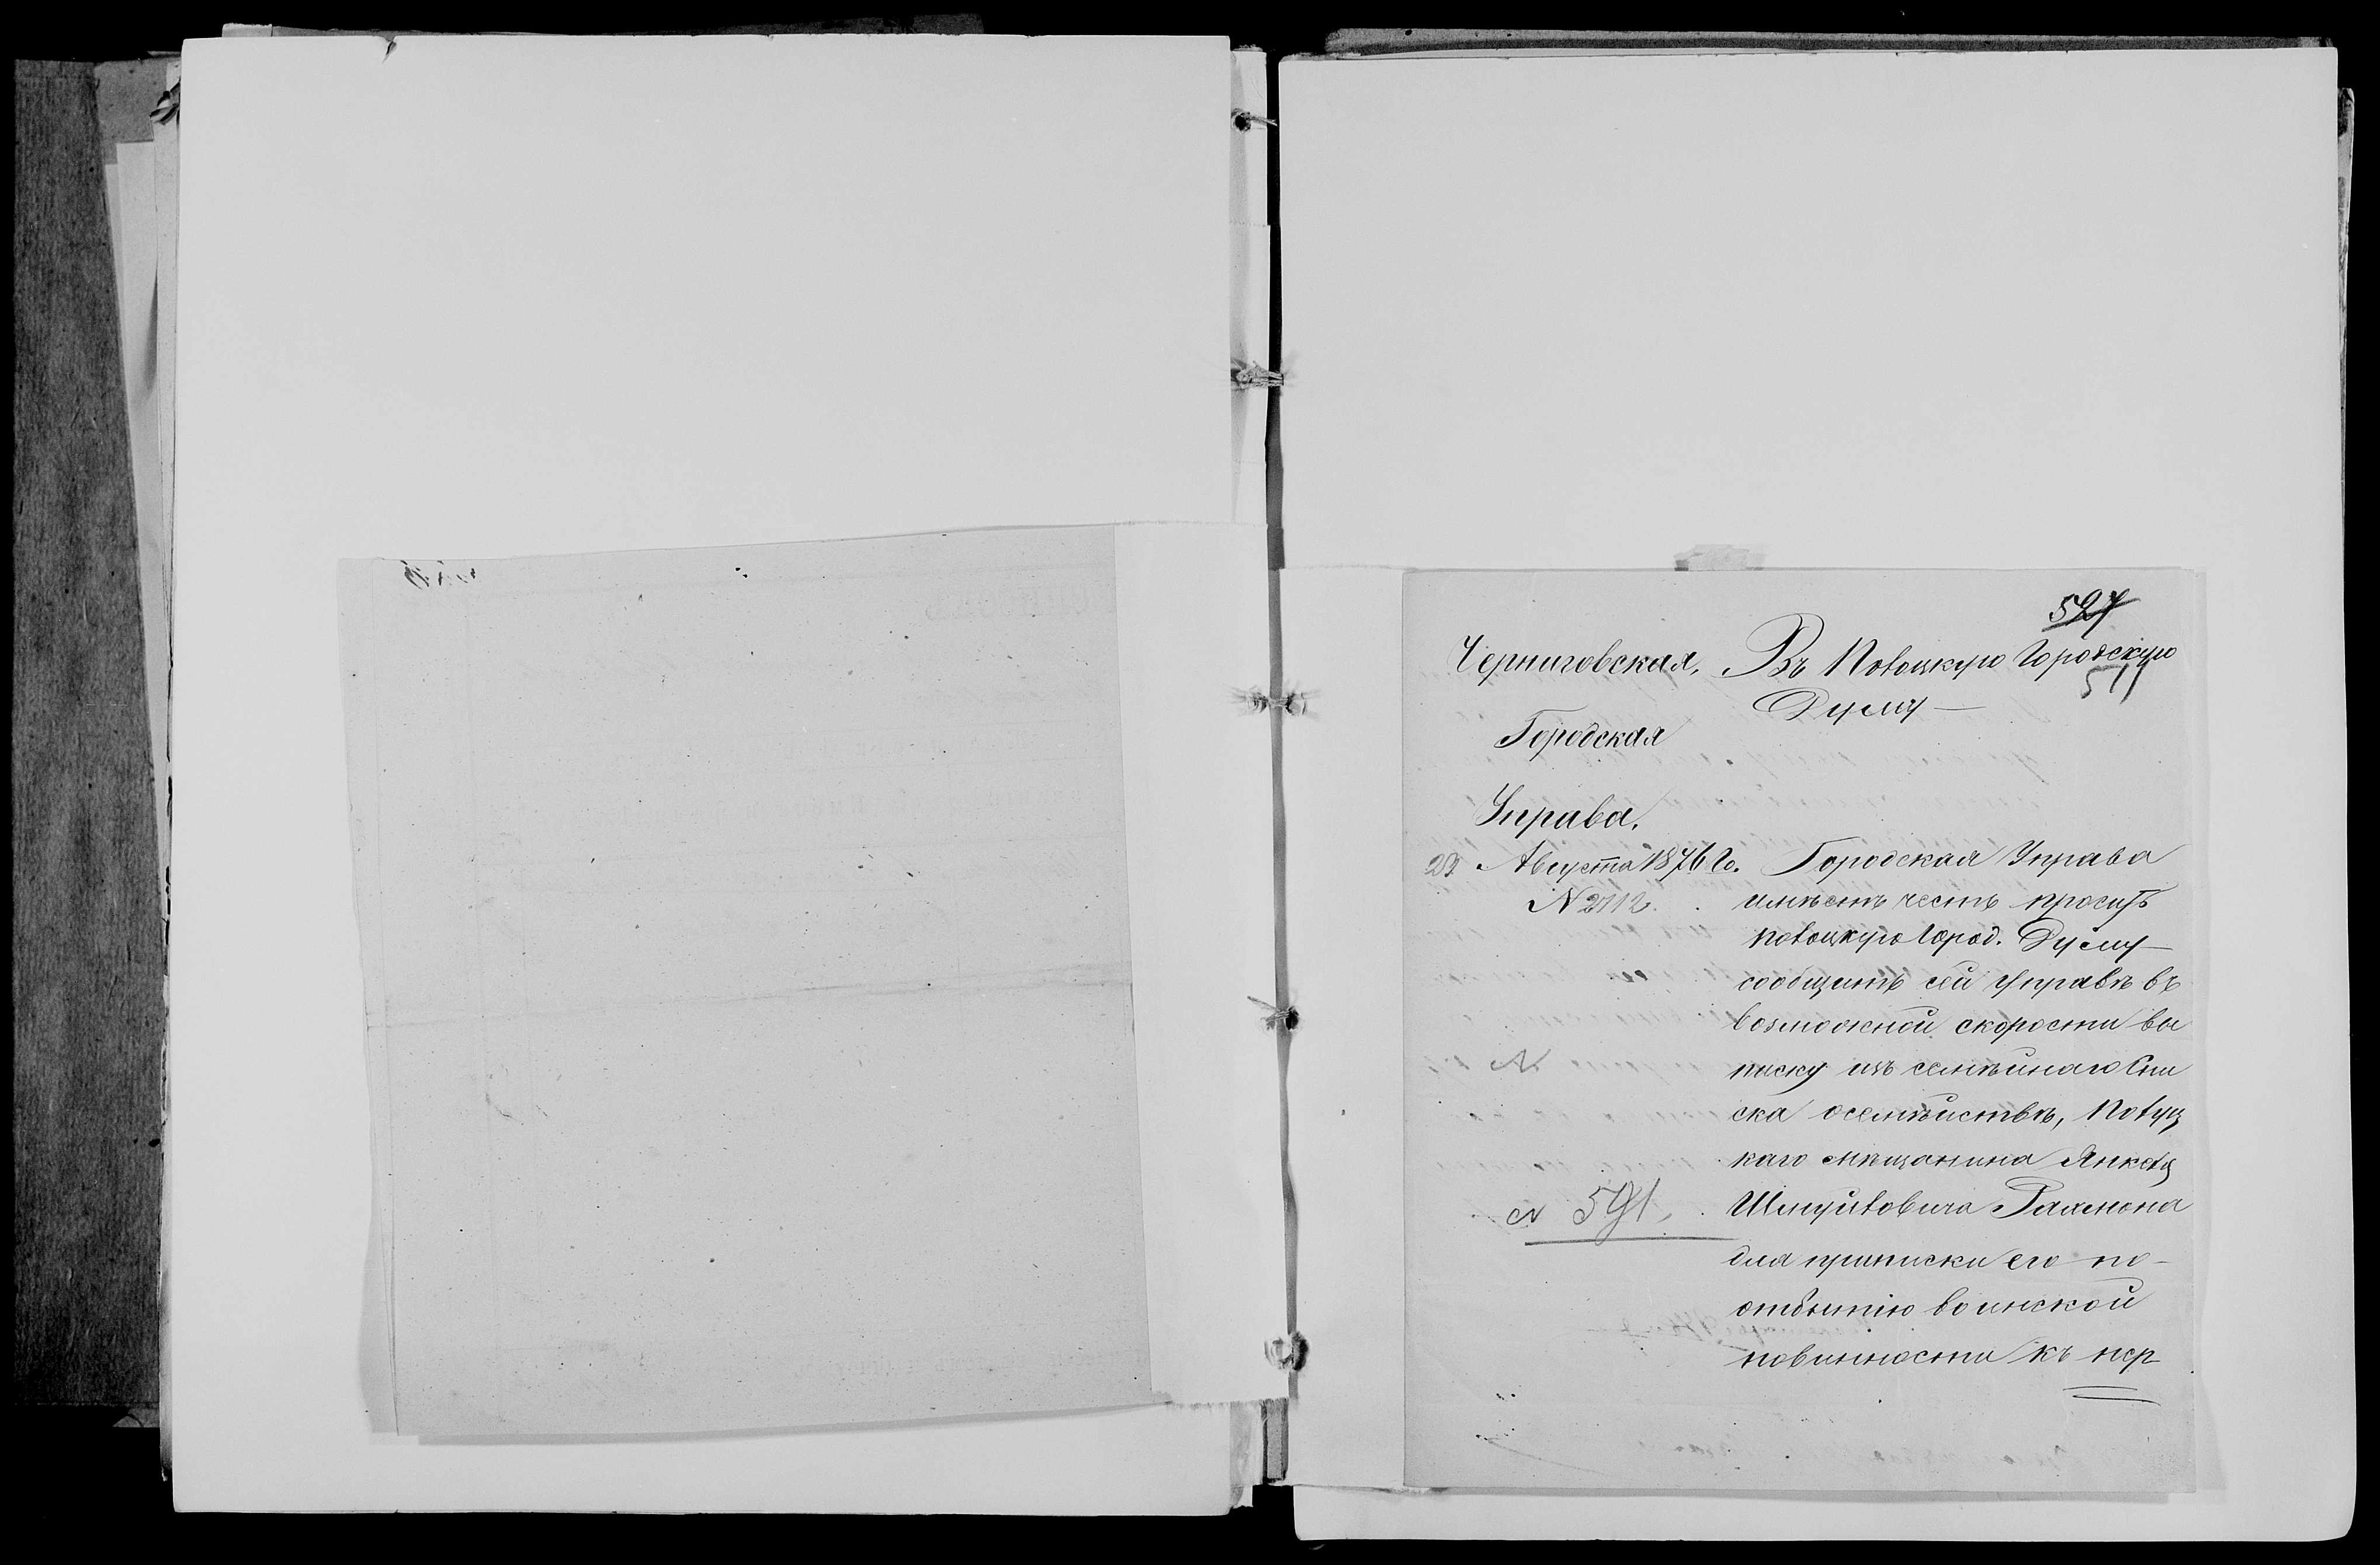 527
511
Черниговская,
Городская
Управа.
23 Августа 1876 Го.
N 2712.
N 591.
Въ Полоцкую Городскую
Думу —
Городская Управа
имѣетъ честь просить
Полоцкую Город. Думу —
сообщить сей Управѣ въ
возможной скорости вы
писку изъ семѣйнаго Спи
ска о семѣйствѣ, Полуц
каго мѣщанина Янкеля
Шмуйловича Рахмона
для приписки его по-
отбытію воинской
повинности къ